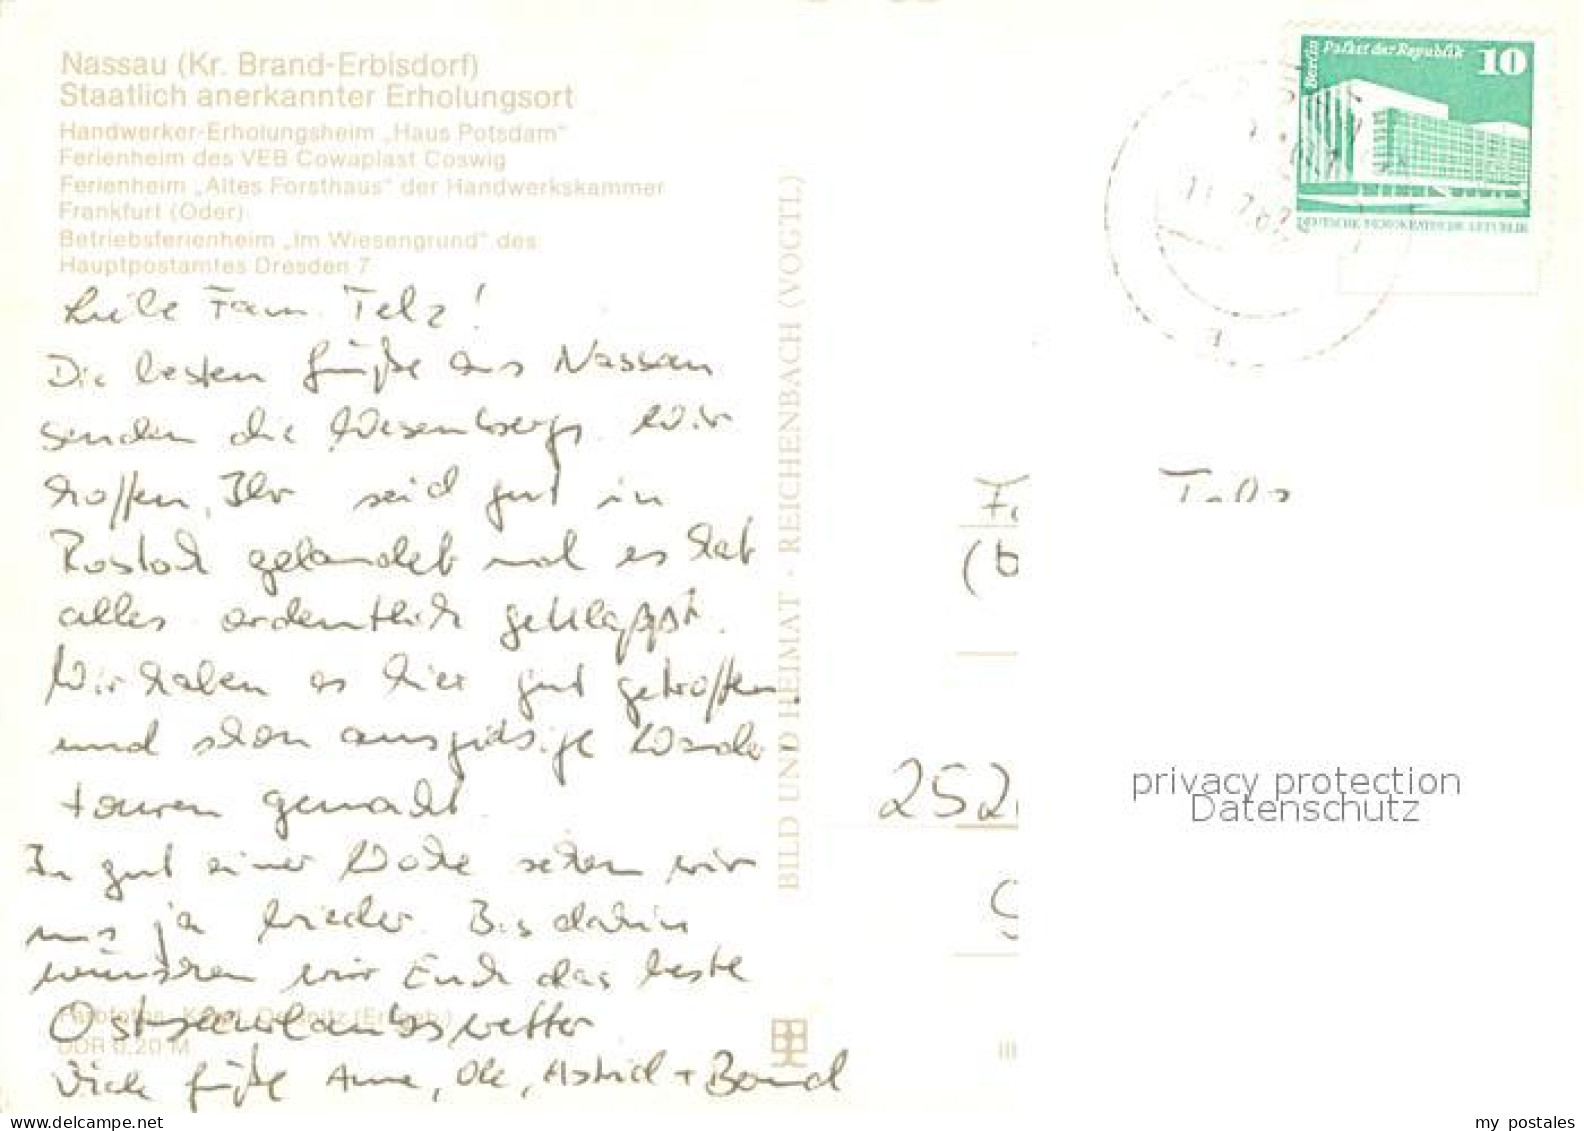 Nassau (Kr. Brand-Erbisdorf)
Staatlich anerkannter Erholungsort
Handwerker-Erholungsheim „Haus Potsdam"
Ferienheim des VEB Cowaplast Coswig
Ferienheim „Altes Forsthaus" der Handwerkskammer
Frankfurt (Oder)
Betriebsferienheim „Im Wiesengrund" des
Hauptpostamtes Dresden 7
Liebe Fam. Telz!
Die besten Grüße aus Nassau
senden die Wesenbergs. Wir
hoffen, Ihr seid gut in
Rostock gelandet und es hat
alles ordentlich geklappt.
Wir haben es hier gut getroffen
und schon ausgiebige Wander
touren gemacht.
In gut einer Woche sehen wir
uns ja wieder. Bis dahin
wünschen wir Euch das beste
Ostseeurlaubswetter
Viele Grüße Anne, Ole, Astrid + Bernd
DDR 0,20 M
BILD UND HEIMAT · REICHENBACH (VOGTL)
Berlin Palast der Republik 10
DEUTSCHE DEMOKRATISCHE REPUBLIK
Telz
(b
252
privacy protection
Datenschutz
my postales